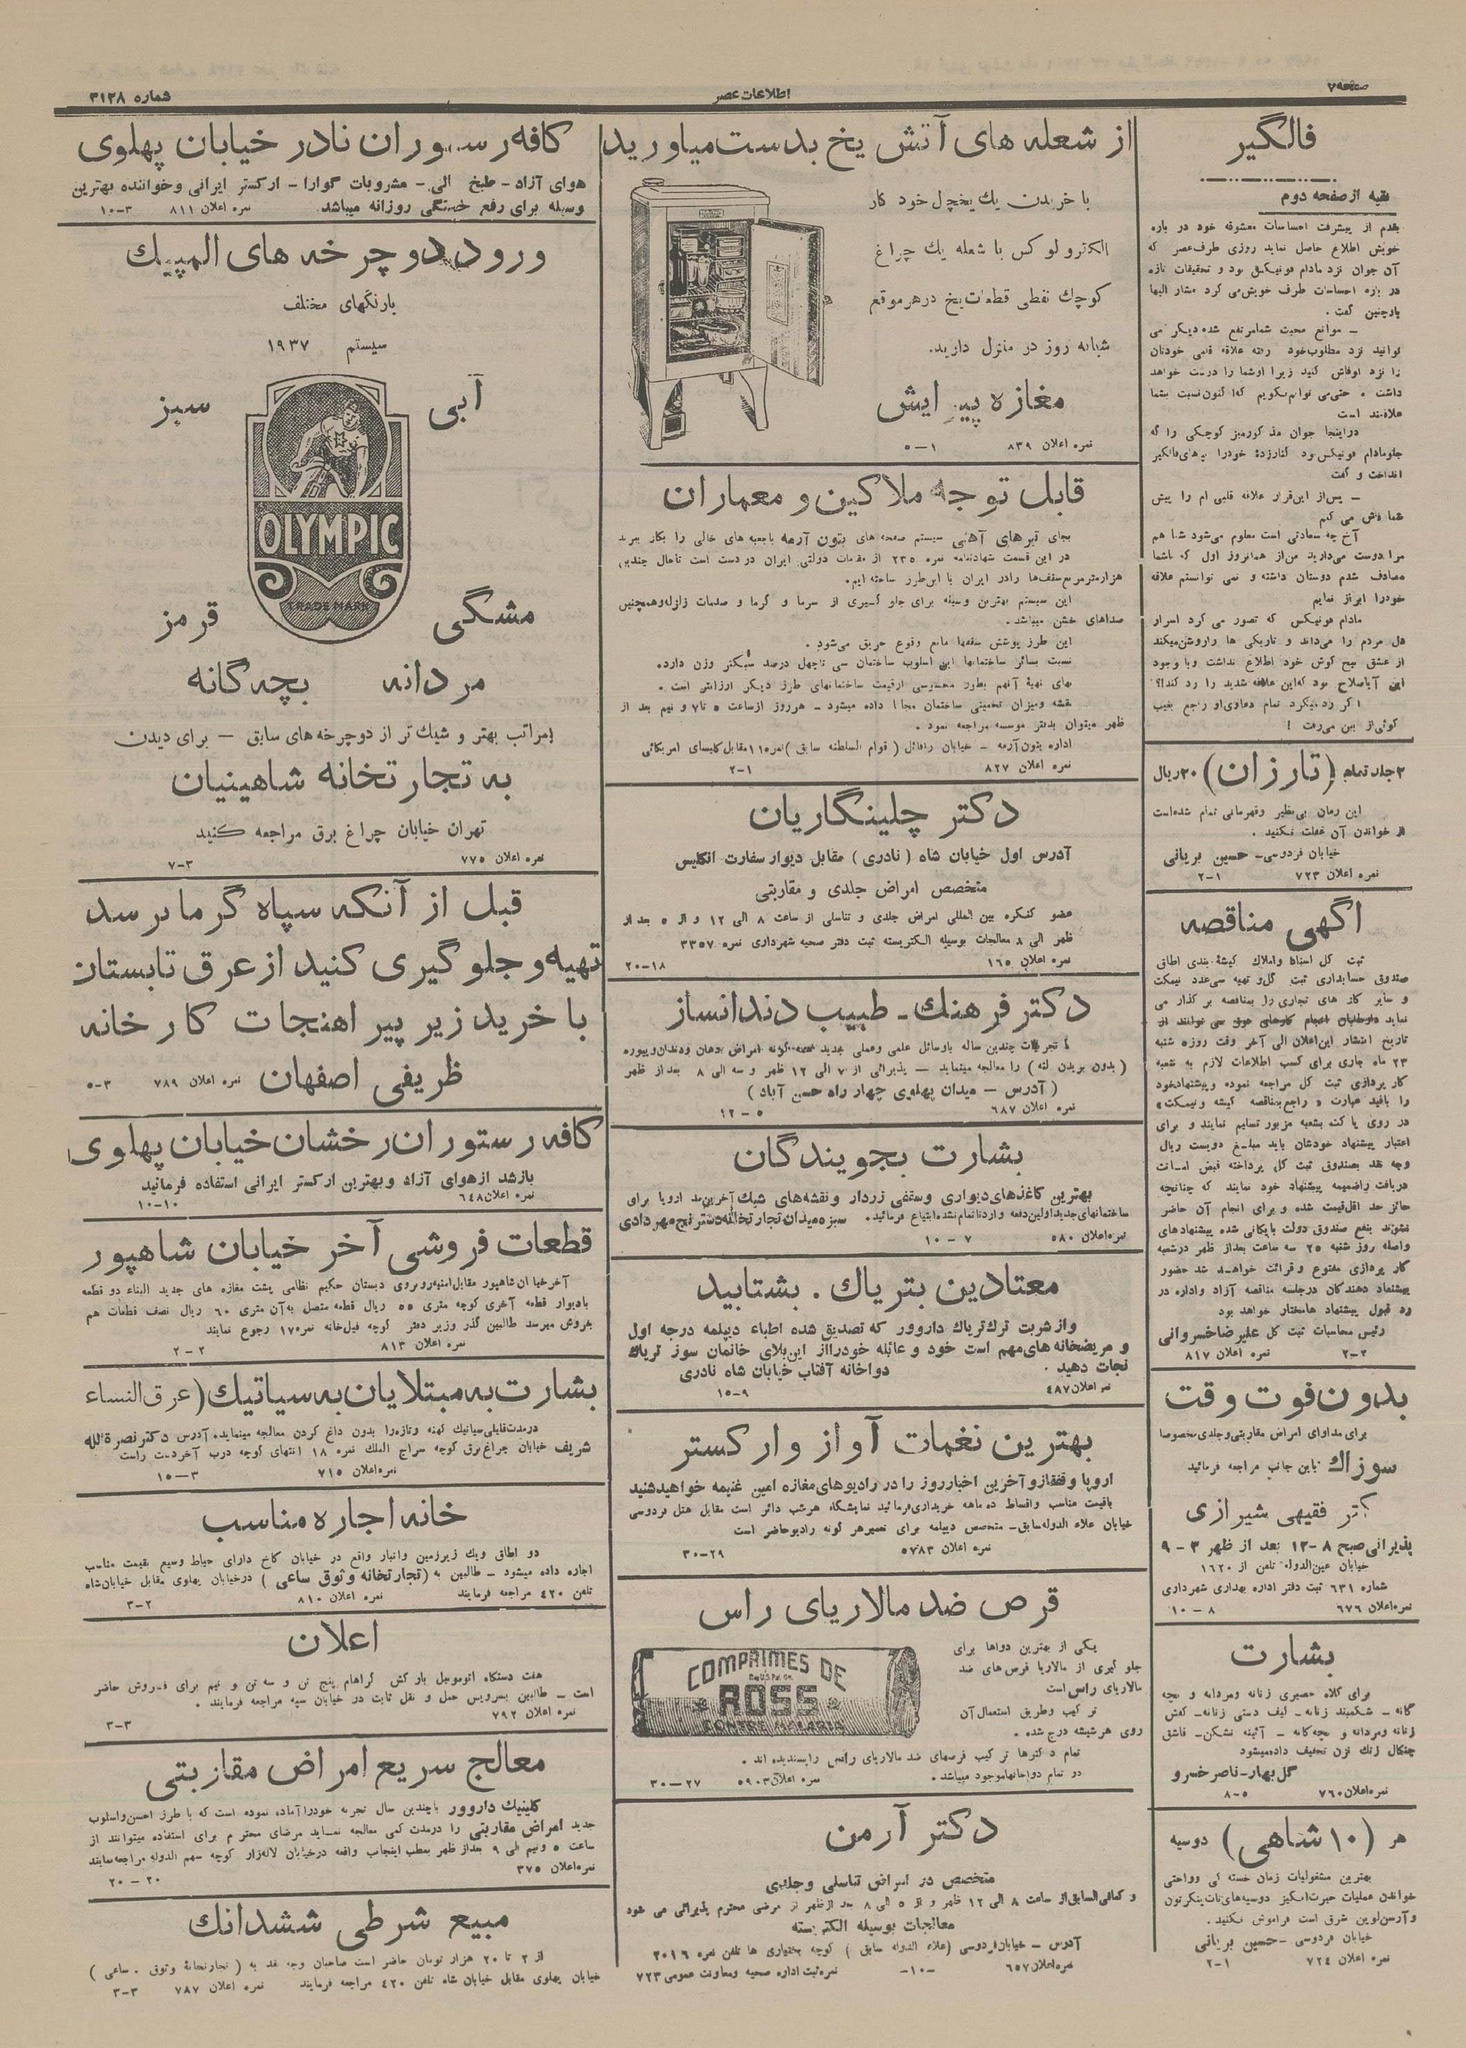 صفحه ۷
اطلاعات عصر
شماره ۳۱۲۸
فالگیر
بقیه از صفحه دوم
بعدم از پیشرفت احساسات معشوقه خود در باره
خویش اطلاع حاصل نماید روزی طرف عصر که
آن جوان نزد مادام فونیکس بود و تحقیقات تازه
در باره احساسات طرف خویش می کرد مشار الیها
باو چنین گفت .
— موانع محبت شما مرتفع شده دیگر می
توانید نزد مطلوب خود رفته علاقه قلبی خودتان
را نزد او فاش کنید زیرا او شما را دوست خواهد
داشت . حتی می توانم بگویم که اکنون نسبت بشما
علاقمند است
در اینجا جوان مذکور میز کوچکی را که
جلو مادام فونیکس بود کنار زده خود را بپای فالگیر
انداخت و گفت
— پس از این قرار علاقه قلبی ام را پیش
شما فاش می کنم
آخ چه سعادتی است معلوم میشود شما هم
مرا دوست می دارید من از همان روز اول که با شما
مصادف شدم دوستتان داشته و نمی توانستم علاقه
خود را ابراز نمایم
مادام فونیکس که تصور می کرد اسرار
دل مردم را می داند و تاریکی ها را روشن میکند
از عشق بیخ گوش خود اطلاع نداشت و با وجود
این آیا صلاح بود که این علاقه شدید را رد کند؟!
اگر رد میکرد تمام دعاوی او راجع بغیب
گوئی از بین می رفت !
۲ جلد تمام (تارزان) ۲۰ ریال
این رمان بی نظیر و قهرمانی تمام شده است
از خواندن آن غفلت نکنید .
خیابان فردوسی – حسین بریانی
نمره اعلان ۷۲۳ ۱–۲
آگهی مناقصه
ثبت کل اسناد و املاک کیشهٔ بندی اطاق
صندوق حسابداری ثبت کل و تهیه سی عدد نیمکت
و سایر کار های نجاری را بمناقصه بر گذار می
نماید داوطلبان انجام کارهای فوق می توانند از
تاریخ انتشار این اعلان الی آخر وقت روز ۵ شنبه
۲۳ ماه جاری برای کسب اطلاعات لازم به شعبه
کار پردازی ثبت کل مراجعه نموده و پیشنهاد خود
را با قید عبارت « راجع بمناقصه کیشه و نیمکت»
در روی پاکت بشعبه مزبور تسلیم نمایند و برای
اعتبار پیشنهاد خودشان باید مبلغ دویست ریال
وجه نقد بصندوق ثبت کل پرداخته قبض امانت
دریافت و ضمیمه پیشنهاد خود نمایند که چنانچه
حائز حد اقل قیمت شده و برای انجام آن حاضر
نشوند بنفع صندوق دولت بایگانی شده پیشنهادهای
واصله روز شنبه ۲۵ سه ساعت بعد از ظهر در شعبه
کار پردازی مفتوح و قرائت خواهد شد حضور
پیشنهاد دهندگان در جلسه مناقصه آزاد و اداره در
رد قبول پیشنهاد ها مختار خواهد بود
رئیس محاسبات ثبت کل علیرضا خسروانی
نمره اعلان ۸۱۷ ۲–۲
بدون فوت وقت
برای مداوای امراض مقاربتی و جلدی مخصوصا
سوزاک باین جانب مراجعه فرمائید
دکتر فقیهی شیرازی
پذیرائی صبح ۸–۱۲ بعد از ظهر ۳–۹
خیابان عین الدوله تلفن از ۱۶۲۰
شماره ۶۳۱ ثبت دفتر اداره بهداری شهرداری
نمره اعلان ۶۷۶ ۸–۱۰
بشارت
برای کلاه حصیری زنانه و مردانه و بچه
گانه – شکمبند زنانه – کیف دستی زنانه – کفش
زنانه و مردانه و بچه گانه – آئینه نشکن – قاشق
چنگال زنگ نزن تخفیف داده میشود
گل بهار – ناصر خسرو
نمره اعلان ۷۶۰ ۵–۸
هر (۱۰ شاهی) دوسیه
بهترین مشغولیات زمان خسته گی و راحتی
خواندن عملیات حیرت انگیز دوسیه های نات پینکرتون
و آرسن لوپن شرق است فراموش نکنید .
خیابان فردوسی – حسین بریانی
نمره اعلان ۷۲۴ ۱–۲
از شعله های آتش یخ بدست میاورید
با خریدن یک یخچال خود کار
الکترولوکس با شعله یک چراغ
کوچک نفطی قطعات یخ در هر موقع
شبانه روز در منزل دارید.
مغازه پیرایش
نمره اعلان ۸۳۹ ۱–۵
قابل توجه ملاکین و معماران
بجای تیرهای آهنی سیستم صفحه های بتون آرمه با جعبه های خالی را بکار ببرید
در این قسمت شهادتنامه نمره ۲۳۵ از مقامات دولتی ایران در دست است تا حال چندین
هزار متر مربع سقفها را در ایران با این طرز ساخته ایم.
این سیستم بهترین وسیله برای جلو گیری از سرما و گرما و صدمات زلزله و همچنین
صداهای خشن میباشد.
این طرز پوشش سقفها مانع وقوع حریق می شود .
نسبت بسائر ساختمانها این اسلوب ساختمان سی تا چهل درصد سبکتر وزن دارد.
بهای تهیه آنهم بطور محسوسی از قیمت ساختمانهای طرز دیگر ارزانتر است .
نقشه و میزان تخمینی ساختمان مجانا داده میشود – هر روز از ساعت ۵ تا ۷ و نیم بعد از
ظهر میتوان بدفتر موسسه مراجعه نمود .
اداره بتون آرمه – خیابان رافائل ( قوام السلطنه سابق ) نمره ۱۱ مقابل کلیسای امریکائی
نمره اعلان ۸۲۷ ۱–۲
دکتر چلینگاریان
آدرس اول خیابان شاه (نادری) مقابل دیوار سفارت انگلیس
متخصص امراض جلدی و مقاربتی
عضو کنگره بین المللی امراض جلدی و تناسلی از ساعت ۸ الی ۱۲ و از ۵ بعد از
ظهر الی ۸ معالجات بوسیله الکتریسته ثبت دفتر صحیه شهرداری نمره ۳۳۵۷
نمره اعلان ۱۶۵ ۱۸–۲۰
دکتر فرهنگ – طبیب دندانساز
با تجربیات چندین ساله با وسائل علمی و عملی جدید همه گونه امراض دهان و دندان و پیوره
( بدون بریدن لثه ) را معالجه مینماید – پذیرائی از ۷ الی ۱۲ ظهر و سه الی ۸ بعد از ظهر
( آدرس – میدان پهلوی چهار راه حسن آباد )
نمره اعلان ۶۸۷ ۵–۱۲
بشارت بجویندگان
بهترین کاغذهای دیواری و سقفی زردار و نقشه های شیک آخرین مد اروپا برای
ساختمانهای جدید اولین دفعه وارد تا تمام نشده ابتیاع فرمائید. سبزه میدان تجارتخانه دشتر نج مهردادی
نمره اعلان ۵۸۰ ۷–۱۰
معتادین بتریاک . بشتابید
و از شربت ترک تریاک داروور که تصدیق شده اطباء دیپلمه درجه اول
و مریضخانه های مهم است خود و عائله خود را از این بلای خانمان سوز تریاک
نجات دهید . دواخانه آفتاب خیابان شاه نادری
نمره اعلان ۴۸۷ ۹–۱۵
بهترین نغمات آواز و ارکستر
اروپا و قفقاز و آخرین اخبار روز را در رادیوهای مغازه امین غنیمه خواهید شنید
با قیمت مناسب و اقساط ده ماهه خریداری فرمائید نمایشگاه هر شب دائر است مقابل هتل فردوسی
خیابان علاء الدوله سابق – متخصص دیپلمه برای تعمیر هر گونه رادیو حاضر است
نمره اعلان ۵۷۸۳ ۲۹–۳۰
قرص ضد مالاریای راس
یکی از بهترین دواها برای
جلو گیری از مالاریا قرص های ضد
مالاریای راس است
ترکیب و طریق استعمال آن
روی هر شیشه درج شده .
COMPRIMES DE
ROSS
CONTRE MALARIA
تمام دکترها ترکیب قرصهای ضد مالاریای راس را پسندیده اند .
در تمام دواخانها موجود میباشد . نمره اعلان ۵۹۰۳ ۲۷–۳۰
دکتر آرمن
متخصص در امراض تناسلی و جلدی
و کمافی السابق از ساعت ۸ الی ۱۲ ظهر و از ۵ الی ۸ بعد از ظهر از مرضی محترم پذیرائی می شود
معالجات بوسیله الکتریسته
آدرس – خیابان فردوسی (علاء الدوله سابق ) کوچه بختیاری ها تلفن نمره ۲۰۱۶
نمره اعلان ۶۵۷ –۱۰– نمره ثبت اداره صحیه و معاونت عمومی ۷۲۳
کافه رستوران نادر خیابان پهلوی
هوای آزاد – طبخ الی – مشروبات گوارا – ارکستر ایرانی و خواننده بهترین
وسیله برای رفع خستگی روزانه میباشد نمره اعلان ۸۱۱ ۳–۱۰
ورود دوچرخه های المپیک
بارنگهای مختلف
سیستم ۱۹۳۷
آبی سبز
OLYMPIC
TRADE MARK
مشگی قرمز
مردانه بچه گانه
بمراتب بهتر و شیک تر از دوچرخه های سابق — برای دیدن
به تجارتخانه شاهینیان
تهران خیابان چراغ برق مراجعه کنید
نمره اعلان ۷۷۵ ۳–۷
قبل از آنکه سپاه گرما برسد
تهیه و جلوگیری کنید از عرق تابستان
با خرید زیر پیراهنجات کارخانه
ظریفی اصفهان نمره اعلان ۷۸۹ ۳–۵
کافه رستوران رخشان خیابان پهلوی
باز شد از هوای آزاد و بهترین ارکستر ایرانی استفاده فرمائید
نمره اعلان ۶۴۸ ۱۰–۱۰
قطعات فروشی آخر خیابان شاهپور
آخر خیابان شاهپور مقابل امنیه روبروی دبستان حکیم نظامی پشت مغازه های جدید البناء دو قطعه
با دیوار قطعه آخری کوچه متری ۵۵ ریال قطعه متصل به آن متری ۶۰ ریال نصف قطعات هم
بفروش میرسد طالبین گذر وزیر دفتر کوچه فیل خانه نمره ۱۷ رجوع نمایند
نمره اعلان ۸۱۳ ۲–۲
بشارت به مبتلایان به سیاتیک (عرق النساء
در مدت قلیلی سیاتیک کهنه و تازه را بدون داغ کردن معالجه مینماید. آدرس دکتر نصرة الله
شریف خیابان چراغ برق کوچه سراج الملک نمره ۱۸ انتهای کوچه درب آخر دست راست
نمره اعلان ۷۱۵ ۳–۱۵
خانه اجاره مناسب
دو اطاق و یک زیرزمین و انبار واقع در خیابان کاخ دارای حیاط وسیع بقیمت مناسب
اجاره داده میشود – طالبین به (تجارتخانه وثوق ساعی) در خیابان پهلوی مقابل خیابان شاه
تلفن ۴۲۰ مراجعه فرمایند نمره اعلان ۸۱۰ ۲–۳
اعلان
هفت دستگاه اتومبیل بار کش گراهام پنج تن و سه تن و نیم برای فروش حاضر
است – طالبین بسرویس حمل و نقل ثابت در خیابان سپه مراجعه فرمایند .
نمره اعلان ۷۹۲ ۳–۳
معالج سریع امراض مقاربتی
کلینیک داروور با چندین سال تجربه خود را آماده نموده است که با طرز احسن و اسلوب
جدید امراض مقاربتی را در مدت کمی معالجه نماید مرضای محترم برای استفاده میتوانند از
ساعت ۵ و نیم الی ۹ بعد از ظهر بمطب اینجانب واقعه در خیابان لاله زار کوچه سهم الدوله مراجعه نمایند
نمره اعلان ۳۷۵ ۲۰–۲۰
مبیع شرطی ششدانگ
از ۲ تا ۲۰ هزار تومان حاضر است صاحبان وجه نقد به ( تجارتخانهٔ وثوق . ساعی )
خیابان پهلوی مقابل خیابان شاه تلفن ۴۲۰ مراجعه فرمایند نمره اعلان ۷۸۷ ۳–۳